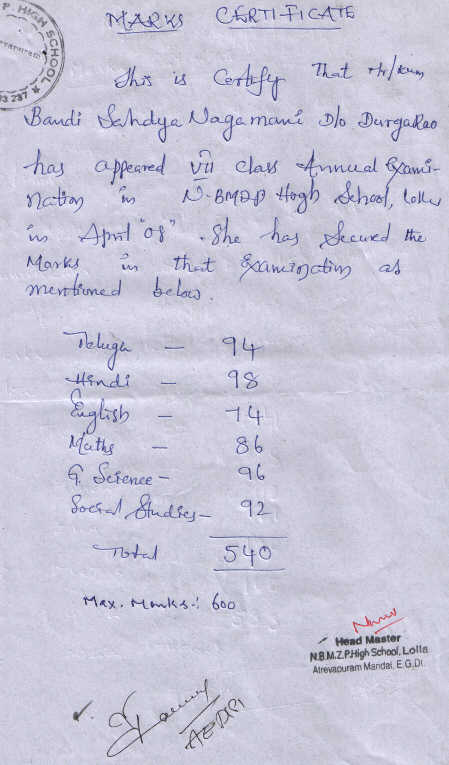 P. HIGH SCHOOL
MARKS CERTIFICATE
This is Certify That
Bandi Sahdya Nagamani D/o DurgaRao
has appeared VII class Annual Exami-
nation in N.BMZP Hogh School, Lolla
in April "08". She has Secured the
Marks in that Examination as
mentioned below.
Telugu — 94
Hindi — 98
English — 74
Maths — 86
G. Science — 96
Social Studies — 92
Total 540
Max. Marks: 600
Head Master
N.B.M.Z.P.High School, Lolla
Atreyapuram Mandal, E.G.Dt.